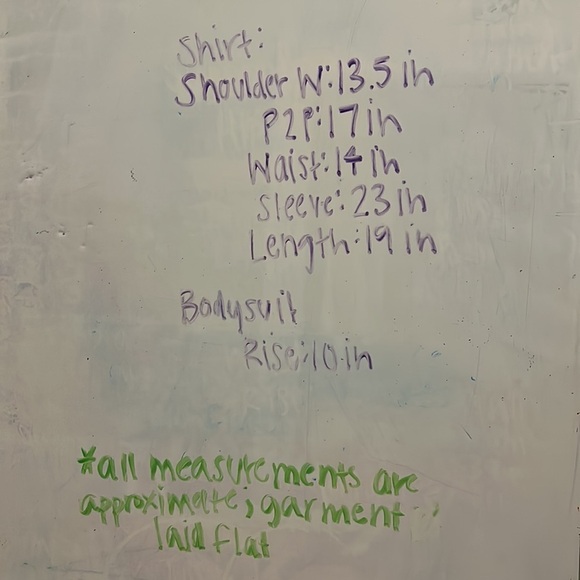 Shirt:
Shoulder W:13.5 in
P2P:17in
Waist:14 in
Sleeve:23 in
Length:19 in
Bodysuit
Rise:10 in
*all measurements are
approximate; garment
laid flat